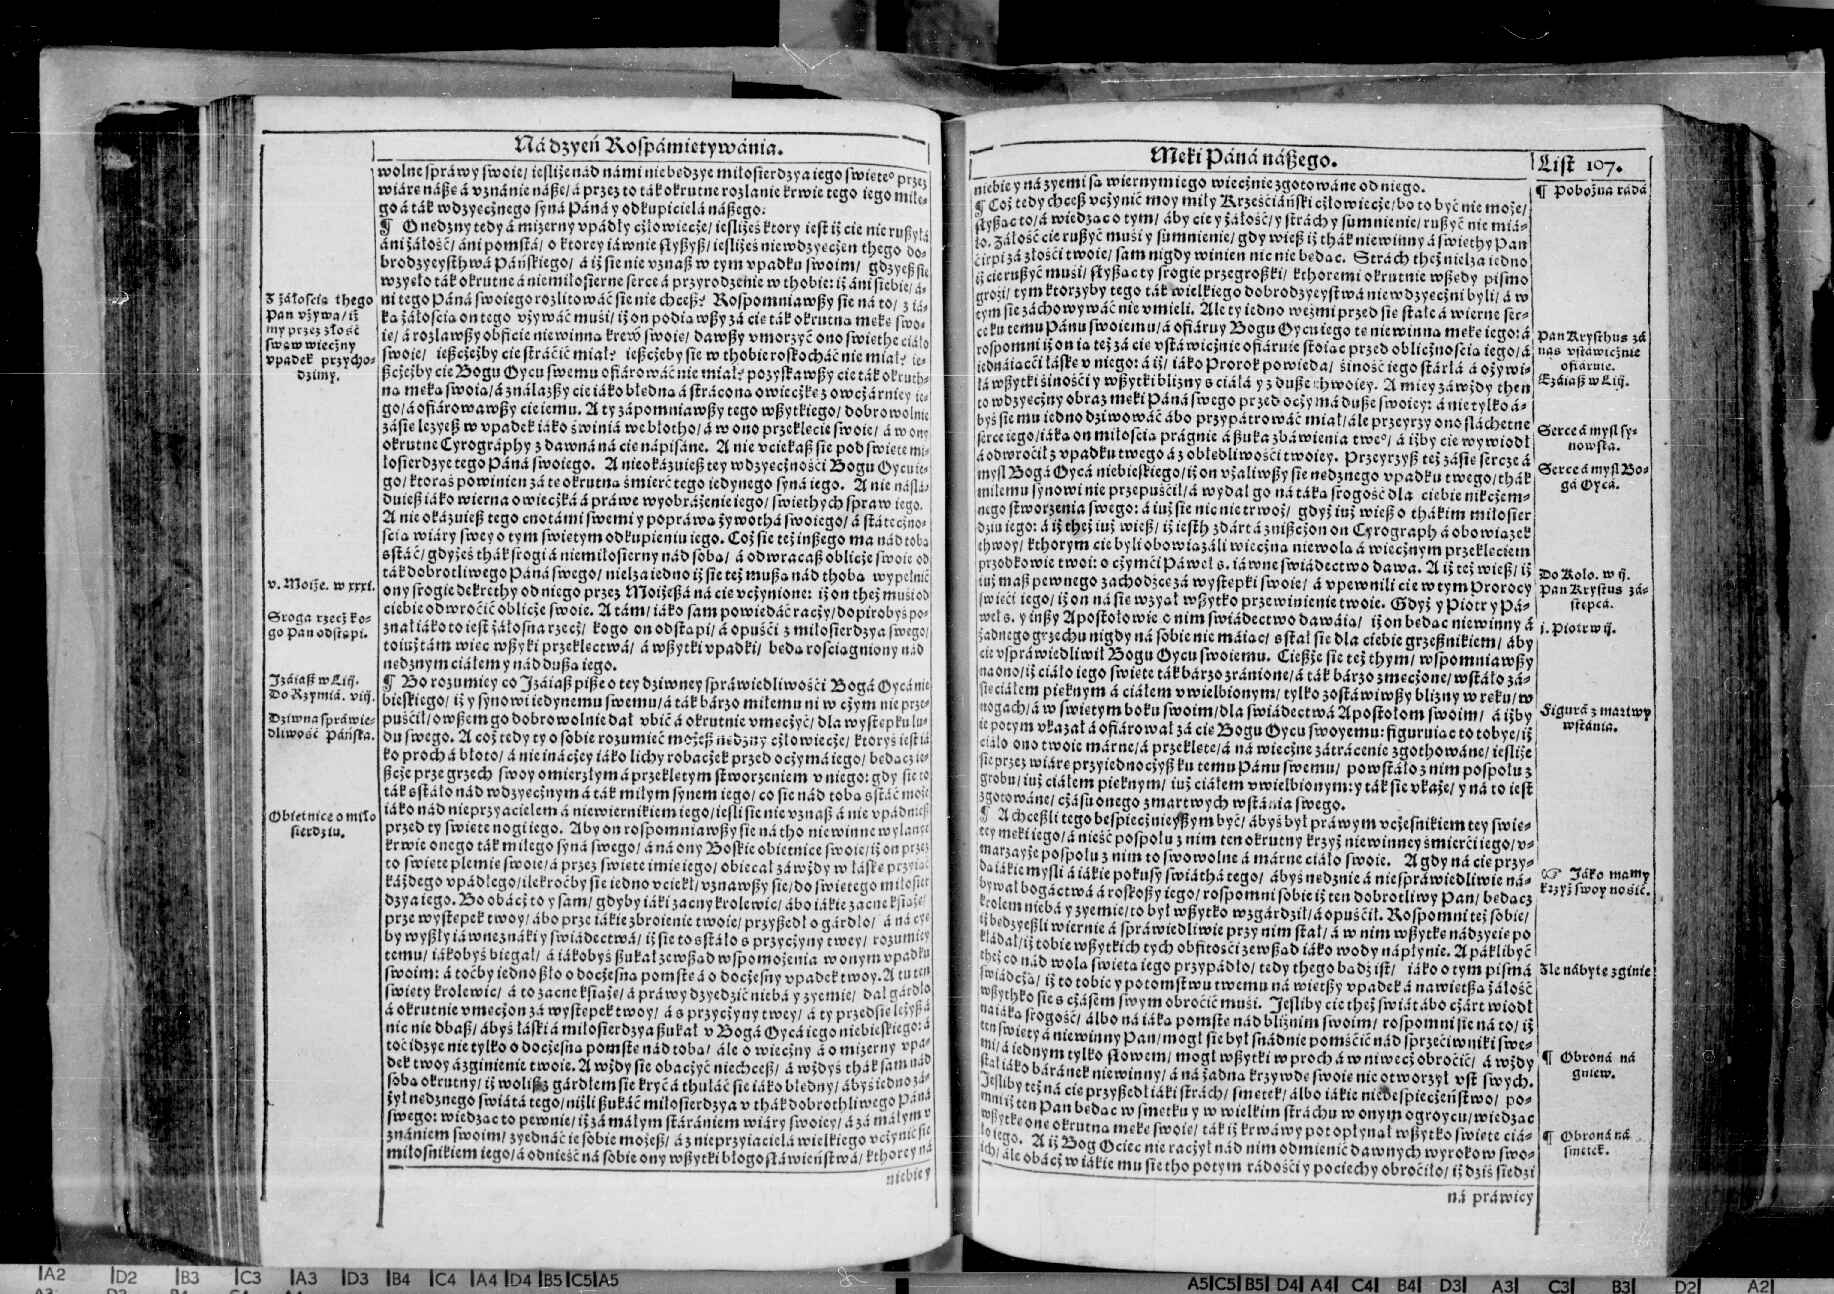 Ná dzyeń Rospámiętywánia.
wolne spráwy swoie/ iesliże nád námi niebędzye miłosierdzya iego święteº przez
wiárę náßę á vznánie náße/ á przez to ták okrutne rozlanie krwie tego iego miłe-
go á ták wdzyęcżnego syná Páná y odkupicielá náßego.
¶ O nędzny tedy á mizerny vpádły cżłowiecże/ iesliżeś ktory iest iż cie nie rußyłá
áni żáłość/ áni pomstá/ o ktorey iáwnie słyßyß/ iesliżeś niewdzyęcżen thego do-
brodzyeysthwá Páńskiego/ á iż sie nie vznaß w tym vpadku swoim/ gdzyeß sie
wzyęło ták okrutne á niemiłosierne serce á przyrodzenie w thobie: iż áni siebie/ á-
ni tego Páná swoiego rozlitowáć sie nie chceß? Rospomniawßy sie ná to/ z iá-
ką żáłością on tego vżywáć musi/ iż on podiąwßy zá cię ták okrutną mękę swo-
ię/ á rozlawßy obficie niewinną krew swoię/ dawßy vmorzyć ono święthe ciáło
swoie/ ießcżeżby cie strácić miał? ießcżeby sie w thobie roskocháć nie miał? ie-
ßcżeżby cie Bogu Oycu swemu ofiárowáć nie miał? pozyskawßy cie ták okruth-
ną męką swoią/ á ználazßy cie iáko błędną á stráconą owiecżkę z owcżárniey ie-
go/ á ofiárowawßy cie iemu. A ty zápomniawßy tego wßytkiego/ dobrowolnie
zásie leżyeß w vpadek iáko świniá we błotho/ á w ono przeklęcie swoie/ á w ony
okrutne Cyrográphy z dawná ná cię nápisáne. A nie vciekaß sie pod święte mi-
łosierdzye tego Páná swoiego. A nieokázuieß tey wdzyęcżności Bogu Oycu ie-
go/ ktoraś powinien zá te okrutną śmierć tego iedynego syná iego. A nie náślá-
duieß iáko wierna owiecżká á práwe wyobráżenie iego/ świethych spraw iego.
A nie okázuieß tego cnotámi swemi y popráwą żywothá swoiego/ á státecżno-
ścią wiáry swey o tym świętym odkupieniu iego. Coż sie też inßego ma nád tobą
sstáć/ gdyżeś thák srogi á niemiłosierny nád sobą/ á odwracaß oblicże swoie od
ták dobrotliwego Páná swego/ nielza iedno iż sie też mußą nád thobą wypełnić
ony srogie dekrethy od niego przez Moiżeßá ná cię vcżynione: iż on theż musi od
ciebie odwrócić oblicże swoie. A tám/ iáko sam powiedáć racży/ dopirobyś po-
znał iáko to iest żáłosna rzecż/ kogo on odstąpi/ á opuści z miłosierdzya swego/
to iuż tám więc wßyki przeklęctwá/ á wßytki vpadki/ będą rościągniony nád
nędznym ciáłem y nád dußą iego.
¶ Bo rozumiey co Izáiaß piße o tey dziwney spráwiedliwości Bogá Oycá nie-
bieskiego/ iż y synowi iedynemu swemu/ á ták bárzo miłemu ni w cżym nie prze-
puścił/ owßem go dobrowolnie dał vbić á okrutnie vmęcżyć/ dla występku lu-
du swego. A coż tedy ty o sobie rozumieć możeß nędzny cżłowiecże/ ktoryś iest iá-
ko proch á błoto/ á nie ináczey iáko lichy robacżek przed ocżymá iego/ będącż ie-
ßcże prze grzech swoy omierzłym á przeklętym stworzeniem v niego: gdy sie to
ták sstáło nád wdzyęcżnym á ták miłym synem iego/ co sie nád tobą sstáć może
iáko nád nieprzyiacielem á niewiernikiem iego/ iesli sie nie vznaß á nie vpádnieß
przed ty święte nogi iego. Aby on rospomniawßy sie ná tho niewinne wylanie
krwie onego ták miłego syná swego/ á ná ony Boskie obietnice swoie/ iż on przez
to święte plemię swoie/ á przez święte imię iego/ obiecał záwżdy w łáskę przyiąć
káżdego vpádłego/ ilekroćby sie iedno vciekł/ vznawßy sie/ do świętego miłosier
dzya iego. Bo obacż to y sam/ gdyby iáki zacny krolewic/ ábo iákie zacne książe/
prze występek twoy/ ábo prze iákie zbroienie twoie/ przyßedł o gárdło/ á ná cię
by wyßły iáwne znáki y świádectwá/ iż sie to sstáło s przycżyny twey/ rozumiey
temu/ iákobyś biegał/ á iákobyś ßukał zewßąd wspomożenia w onym vpadku
swoim: á toćby iedno ßło o docżesną pomstę á o docżesny vpadek twoy. A tu ten
święty krolewic/ á to zacne książe/ á práwy dzyedzić niebá y zyemie/ dał gárdło
á okrutnie vmęcżon zá występek twoy/ á s przycżyny twey/ á ty przedsię leżyß á
nic nie dbaß/ ábyś łáski á miłosierdzya ßukał v Bogá Oycá iego niebieskiego: á
toć idzye nie tylko o docżesną pomstę nád tobą/ ále o wiecżny á o mizerny vpa-
dek twoy á zginienie twoie. A wżdy sie obacżyć niechceß/ á wżdyś thák sam nád
sobą okrutny/ iż woliß z gárdłem sie kryć á thułáć sie iáko błędny/ ábyś iedno zá-
żył nędznego świátá tego/ niżli ßukáć miłosierdzya v thák dobrothliwego Páná
swego: wiedząc to pewnie/ iż zá máłym stárániem wiáry swoiey/ á zá máłym v
znániem swoim/ zyednáć ie sobie możeß/ á z nieprzyiacielá wielkiego vcżynić sie
miłosnikiem iego/ á odnieść ná sobie ony wßytki błogosłáwieństwá/ kthorey ná
niebie y
Z żáłością thego
Pan vżywa/ iż
my przez złość
swą w wiecżny
vpadek przycho-
dzimy.
v. Moiże. w xxxi.
Sroga rzecż ko-
go Pan odstąpi.
Izáiaß w Liij.
Do Rzymiá. viij.
Dziwna spráwie-
dliwość Páńska.
Obietnice o miło
sierdziu.
Męki Páná náßego.
List 107.
niebie y ná zyemi są wiernym iego wiecżnie zgotowáne od niego.
¶ Coż tedy chceß vcżynić moy miły Krześciáński cżłowiecże/ bo to być nie może/
słyßąc to/ á wiedząc o tym/ áby cie y żáłość/ y strách y sumnienie/ rußyć nie miá-
ło. Żáłość cie rußyć musi y sumnienie/ gdy wieß iż thák niewinny á święthy Pan
ćirpi zá złości twoie/ sam nigdy winien nic nie będąc. Strách theż nielza iedno
iż cie rußyć musi/ słyßąc ty srogie przegroßki/ kthoremi okrutnie wßędy pismo
grozi/ tym ktorzyby tego ták wielkiego dobrodzyeystwá niewdzyęcżni byli/ á w
tym sie záchowywáć nie vmieli. Ale ty iedno weźmi przed się stałe á wierne ser-
ce ku temu Pánu swoiemu/ á ofiáruy Bogu Oycu iego tę niewinną mękę iego: á
rospomni iż on ią też zá cię vstáwicżnie ofiáruie stoiąc przed oblicżnością iego/ á
iednáiącci łáskę v niego: á iż/ iáko Prorok powieda/ śiność iego stárłá á ożywi-
łá wßytki śiności y wßytki blizny s ciáłá y z duße thwoiey. A miey záwżdy then
to wdzyęcżny obraz męki Páná swego przed ocżymá duße swoiey: á nie tylko á-
byś sie mu iedno dziwowáć ábo przypátrowáć miał/ ále przeyrzy ono ßláchetne
serce iego/ iáką on miłością prágnie á ßuka zbáwienia tweº/ á iżby cie wywiodł
á odwrocił z vpadku twego á z obłędliwości twoiey. Przeyrzyß też zásię sercze á
mysl Bogá Oycá niebieskiego/ iż on vżaliwßy sie nędznego vpadku twego/ thák
miłemu synowi nie przepuścił/ á wydał go ná táką srogość dla ciebie nikcżem-
nego stworzenia swego: á iuż sie nic nie trwoż/ gdyż iuż wieß o thákim miłosier
dziu iego: á iż theż iuż wieß/ iż iesth zdárt á znißcżon on Cyrográph á obowiązek
thwoy/ kthorym cie byli obowiązáli wiecżną niewolą á wiecżnym przeklęciem
przodkowie twoi: o cżymci Páweł s. iáwne świádectwo dawa. A iż też wieß/ iż
iuż maß pewnego zachodźcę zá występki swoie/ á vpewnili cie w tym Prorocy
święci iego/ iż on ná się wzyął wßytko przewinienie twoie. Gdyż y Piotr y Pá-
weł s. y inßy Apostołowie o nim świádectwo dawáią/ iż on będąc niewinny á
żadnego grzechu nigdy ná sobie nie máiąc/ sstał sie dla ciebie grzeßnikiem/ áby
cie vspráwiedliwił Bogu Oycu swoiemu. Cießże sie też thym/ wspomniawßy
ná ono/ iż ciáło iego święte ták bárzo zránione/ á ták bárzo zmęcżone/ wstáło zá-
się ciáłem pięknym á ciáłem vwielbionym/ tylko zostáwiwßy blizny w ręku/ w
nogach/ á w świętym boku swoim/ dla świádectwá Apostołom swoim/ á iżby
ie potym vkazał á ofiárował zá cię Bogu Oycu swoyemu: figuruiąc to tobye/ iż
ciáło ono twoie márne/ á przeklęte/ á ná wiecżne zátrácenie zgothowáne/ iesliże
sie przez wiárę przyiednocżyß ku temu Pánu swemu/ powstáło z nim pospołu z
grobu/ iuż ciáłem pięknym/ iuż ciáłem vwielbionym: y ták sie vkaże/ y ná to iest
zgotowáne/ cżásu onego zmartwych wstánia swego.
¶ A chceßli tego bespiecżnieyßym być/ ábyś był práwym vcżesnikiem tey świę-
tey męki iego/ á nieść pospołu z nim ten okrutny krzyż niewinney śmierci iego/ v-
marzayże pospołu z nim to swowolne á márne ciáło swoie. A gdy ná cię przy-
dą iákie myśli á iákie pokusy świáthá tego/ ábyś nędznie á niespráwiedliwie ná-
bywał bogáctwá á roskoßy iego/ rospomni sobie iż ten dobrotliwy Pan/ będącz
krolem niebá y zyemie/ to był wßytko wzgárdził/ á opuścił. Rospomni też sobie/
iż będzyeßli wiernie á spráwiedliwie przy nim stał/ á w nim wßytkę nádzyeię po
kładał/ iż tobie wßytkich tych obfitości zewßąd iáko wody nápłynie. A páklibyć
theż co nád wolą świętą iego przypádło/ tedy thego bądź ist/ iáko o tym pismá
świádcżą/ iż to tobie y potomstwu twemu ná więtßy vpadek á nawiętßą żáłość
wßythko sie s cżásem swym obrócić musi. Jesliby cie theż świát ábo cżárt wiodł
ná iáką srogość/ álbo ná iáką pomstę nád bliźnim swoim/ rospomni sie ná to/ iż
ten święty á niewinny Pan/ mogł sie był snádnie pomścić nád sprzeciwniki swe-
mi/ á iednym tylko słowem/ mogł wßytki w proch á w niwecż obrócić/ á wżdy
stał iáko báránek niewinny/ á ná żadną krzywdę swoię nie otworzył vst swych.
Jesliby też ná cię przyßedł iáki strách/ smętek/ álbo iákie niebespiecżeństwo/ po-
mni iż ten Pan będąc w smętku y w wielkim stráchu w onym ogroycu/ wiedząc
wßytkę onę okrutną mękę swoię/ ták iż krwáwy pot opłynął wßytko święte ciá-
ło iego. A iż Bog Ociec nie racżył nád nim odmienić dawnych wyrokow swo-
ich/ ále obacż w iákie mu sie tho potym rádości y pociechy obróciło/ iż dziś siedzi
ná práwicy
¶ Pobożna rádá
Pan Krysthus zá
nas vstáwicżnie
ofiáruie.
Ezáiaß w Liij.
Serce á mysl sy-
nowska.
Serce á mysl Bo-
gá Oycá.
Do Kolo. w ij.
Pan Krystus zá-
stępcá.
j. Piotr w ij.
Figurá z martwy
wstánia.
☞ Jáko mamy
krzyż swoy nosić.
Źle nábyte zginie
¶ Obroná ná
gniew.
¶ Obroná ná
smętek.
A2 D2 B3 C3 A3 D3 B4 C4 A4 D4 B5 C5 A5
A5 C5 B5 D4 A4 C4 B4 D3 A3 C3 B3 D2 A2